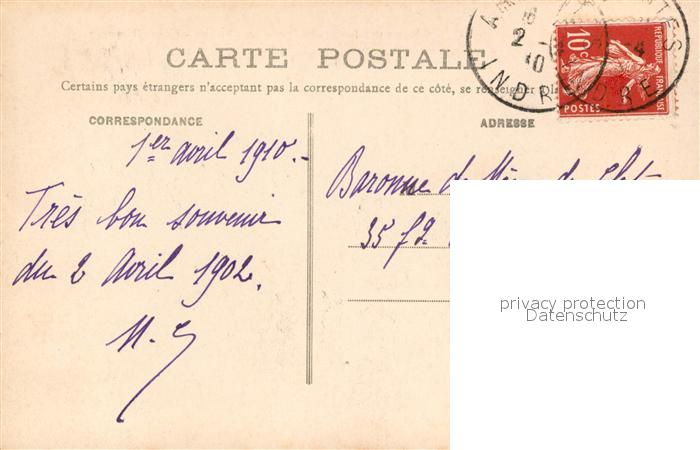 CARTE POSTALE
Certains pays étrangers n'acceptant pas la correspondance de ce côté, se renseigner à la
CORRESPONDANCE
ADRESSE
REPUBLIQUE FRANÇAISE
10c
POSTES
16
2 - 4
10
INDRE
INDRE
1er avril 1910.-
Très bon souvenir
du 2 Avril 1902.
Baronne de
35
privacy protection
Datenschutz